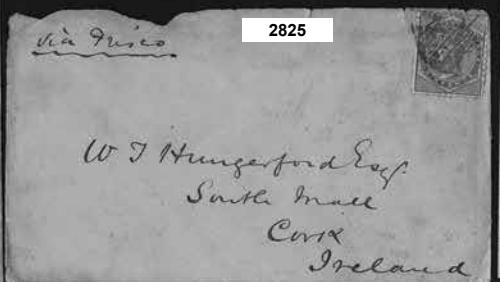 2825
via Frisco
W J Hungerford Esq
South Mall
Cork
Ireland